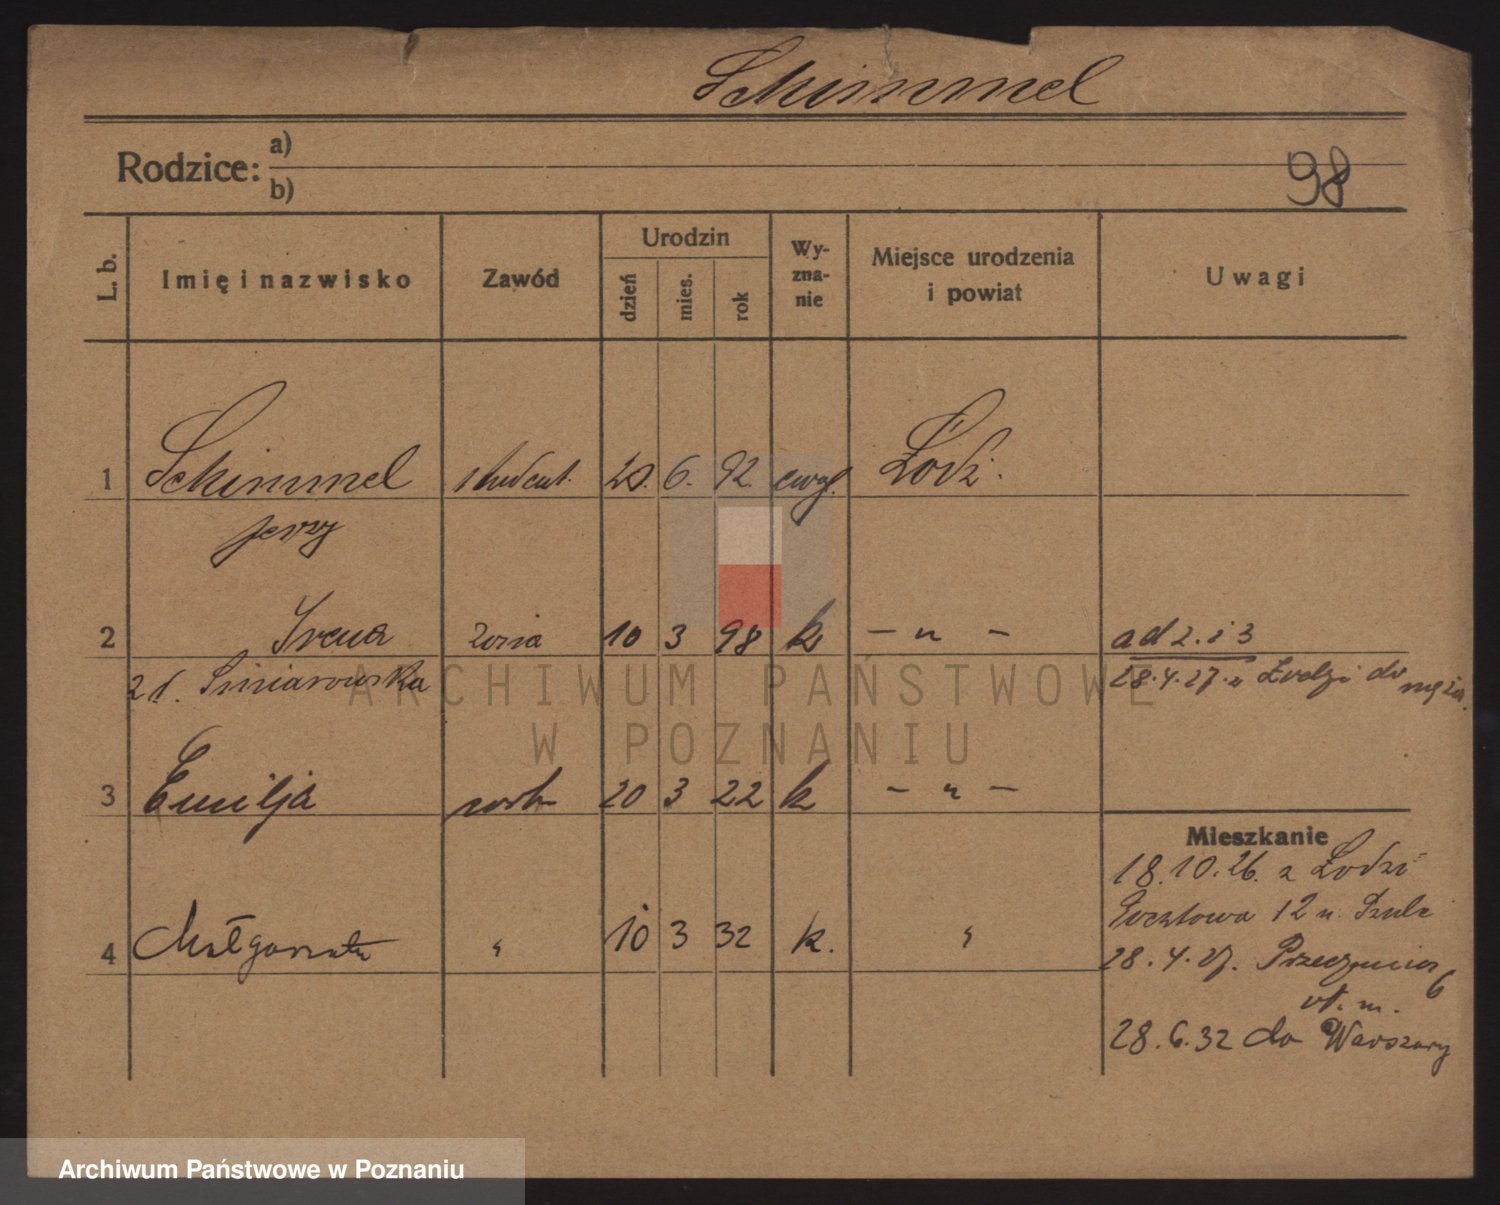 Schimmel
Rodzice: a)
b)
98
L. b.
Imię i nazwisko
Zawód
Urodzin
dzień
mies.
rok
Wy-
zna-
nie
Miejsce urodzenia
i powiat
Uwagi
1 Schimmel student. 20. 6. 92. ewgl. Łódź.
Jerzy
2 Irena żona 10 3 98 k — „ — ad 2. i 3
28.4.27. z Łodzi do męża.
3 Emilja 20 3 22 k — „ —
Mieszkanie
18.10.26. z Łodzi
Pocztowa 12 u
4 Małgorzata „ 10 3 32 k. „
28.4.27. 6
28.6.32 do Warszawy
ARCHIWUM PAŃSTWOWE
W POZNANIU
Archiwum Państwowe w Poznaniu